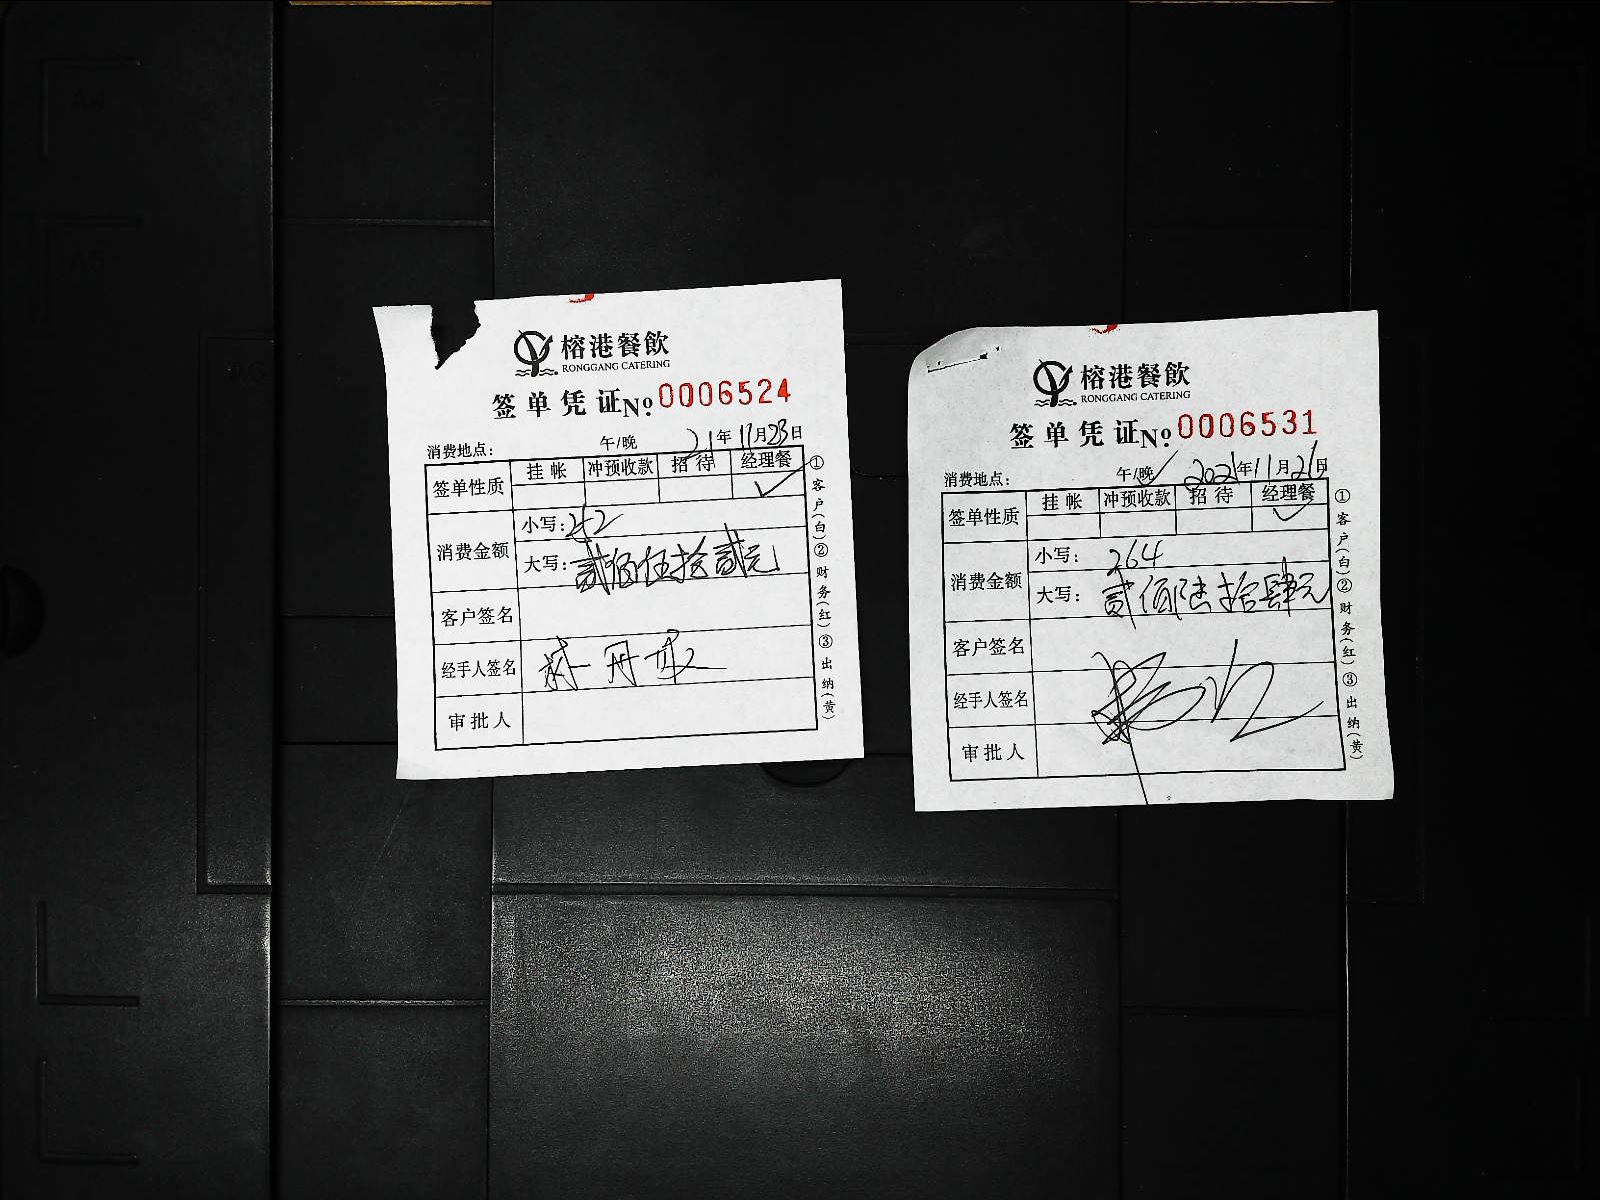 榕港餐飲
RONGGANG CATERING
签单凭证№0006524
消费地点： 午/晚 21年11月23日
签单性质 挂帐 冲预收款 招待 经理餐
消费金额 小写：252
大写：贰佰伍拾贰元
客户签名
经手人签名
审批人
①客户(白)②财务(红)③出纳(黄)
榕港餐飲
RONGGANG CATERING
签单凭证№0006531
消费地点： 午/晚 2021年11月26日
签单性质 挂帐 冲预收款 招待 经理餐
消费金额 小写：264
大写：贰佰陆拾肆元
客户签名
经手人签名
审批人
①客户(白)②财务(红)③出纳(黄)